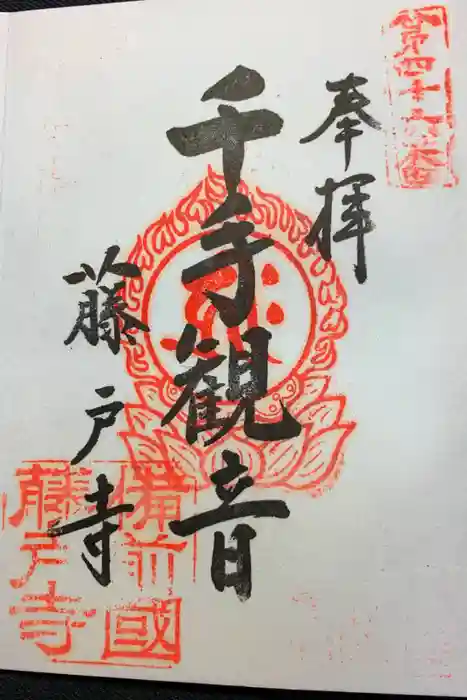 第四十六番
奉拝
千手観音
藤戸寺
備前國
藤戸寺